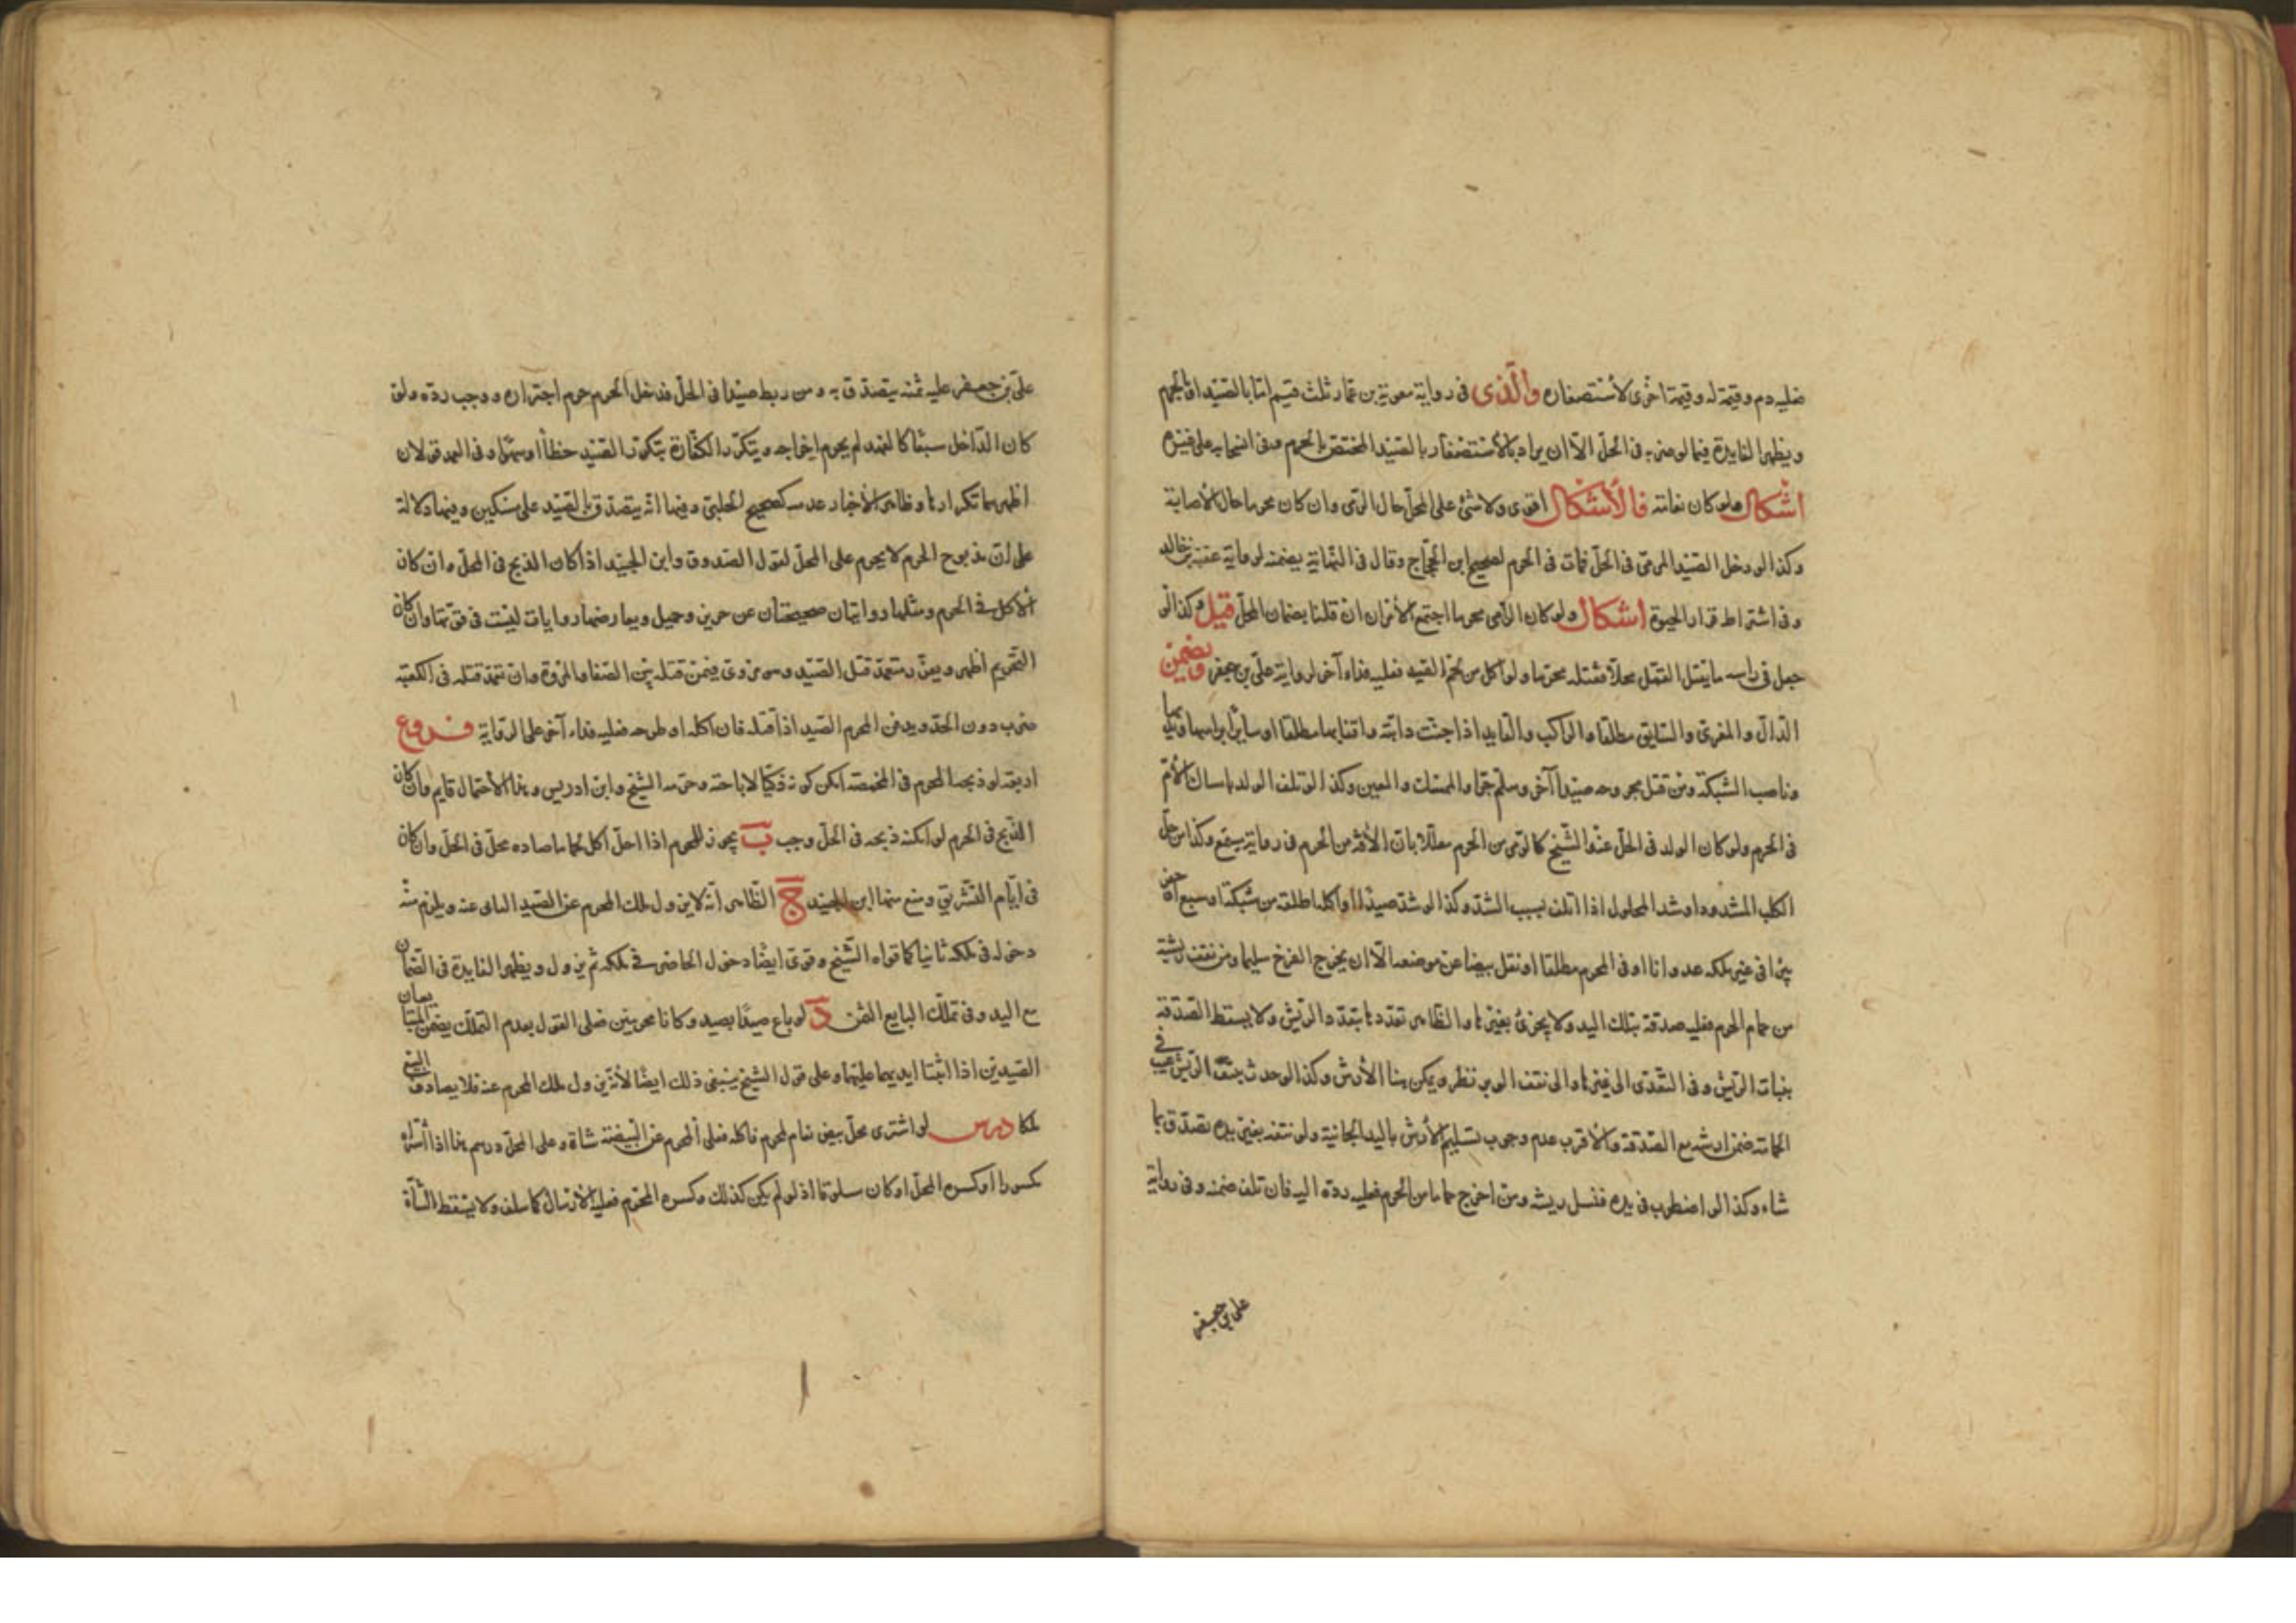 فعليه دم وقيمة له وقيمة اخرى لاستصغاره والذى فى رواية معوية بن عمار ثلث قيم اما بالصيد او بالحرم
ويظهر الفايدة فيما لو ضربه فى الحل الا ان يراد بالاستصغار بالصيد المختص بالحرم وفى انسحابه على غيره
اشكال ولو كان نعامة فالاشكال اقوى ولا شئ على المحل حال الرمى وان كان محرما حال الاصابة
وكذا لو دخل الصيد المرمى فى الحل فمات فى الحرم لصحيح ابن الحجاج وقال فى النهاية يضمنه لرواية عقبة بن خالد
وفى اشتراط قرار الحيوة اشكال ولو كان الرامى محرما اجتمع الامران ان قلنا بضمان المحل قيل وكذا لو
جعل فى راسه ما يقتل القمل محلا فقتله محرما ولو اكل من لحم الصيد فعليه فداء آخر لرواية على بن جعفر ويضمن
الدال والمغرى والسايق مطلقا والراكب والقايد اذا جنت دابته واقفا بها مطلقا او سايرا براسها ويديها
وناصب الشبكة ومن قتل بجروحه صيدا آخر وسلم جرا والممسك والمعين وكذا لو تلف الولد بامساك الام
فى الحرم ولو كان الولد فى الحل عند الشيخ كالرمى من الحرم معللا بان الآفة من الحرم فى رواية مسمع وكذا من حل
الكلب المشدود او شد المحلول اذا اتلف بسبب الشد وكذا لو شد صيدا او اكله ما اطلقه من شبكة او سبع او حفر
بئرا فى غير ملكه عدوانا او فى الحرم مطلقا او نقل بيضا عن موضعه الا ان يخرج الفرخ سليما ومن نتف ريشة
من حمام الحرم فعليه صدقة بتلك اليد ولا يجزئ بغيرها والظاهر تعددها بتعدد الريش ولا يسقط الصدقة
بنبات الريش وفى التعدى الى غيرها والى نتف الوبر نظر ويمكن هنا الارش وكذا لو حدث بنتف الريش عيب فى
الحمامة ضمن ارشه مع الصدقة والاقرب عدم وجوب تسليم الارش باليد الجانية ولو نتفه بغير يده تصدق بما
شاء وكذا لو اضطرب فى يده فنسل ريشه ومن اخرج حماما من الحرم فعليه رده اليه فان تلف ضمنه وفى رواية
على بن جعفر
على بن جعفر عليه ثمنه يتصدق به ومن ربط صيدا فى الحل فدخل الحرم حرم اجتراره ووجب رده ولو
كان الداخل سبعا كالفهد لم يحرم اخراجه ويتكرر الكفارة بتكرر الصيد خطأ او سهوا وفى العمد قولان
اظهرهما تكرارها وظاهر الاخبار عدمه كصحيح الحلبى وفيها انه يتصدق بالصيد على مسكين وفيها دلالة
على ان مذبوح الحرم لا يحرم على المحل لقول الصدوق وابن الجنيد اذا كان الذبح فى الحل وان كان
الاكل فى الحرم ومثلها روايتان صحيحتان عن حريز وجميل ويعارضها روايات ليست فى قوتها وان كان
التحريم اظهر ويعزر متعمد قتل الصيد وهو مروى فيمن قتله بين الصفا والمروة وان تعمد قتله فى الكعبة
ضرب دون الحد ويدفن المحرم الصيد اذا قتله فان اكله او طرحه فعليه فداء آخر على الرواية فروع
اربعة لو ذبحه المحرم فى المخمصة امكن كونه ذكيا لاباحته وحرمه الشيخ وابن ادريس وهنا الاحتمال قايم وان كان
الذبح فى الحرم لو امكنه ذبحه فى الحل وجب ب يجوز للمحرم اذا احل اكل لحم ما صاده محل فى الحل وان كان
فى ايام التشريق ومنع منها ابن الجنيد ج الظاهر انه لا يزول ملك المحرم عن الصيد النائى عنه ويلزم منه
دخوله فى ملكه ثانيا كما قواه الشيخ وقوى ايضا دخول الحاضر فى ملكه ثم يزول ويظهر الفايدة فى الضمان
مع اليد وفى تملك البايع الثمن د لو باع صيدا بصيد وكانا محرمين فعلى القول بعدم التملك يضمن المتبايعان
الصيدين اذا اثبتا ايديهما عليهما وعلى قول الشيخ ينبغى ذلك ايضا لانه يزول ملك المحرم عنه فلا يصادف البيع
ملكا درس لو اشترى محل بيض نعام لمحرم فاكله فعلى المحرم عن البيضة شاة وعلى المحل درهم هنا اذا اشتراه
مكسورا او كسره المحل او كان مسلوقا اذ لو لم يكن كذلك وكسره المحرم فعليه الارسال كما سلف ولا يسقط الشاة